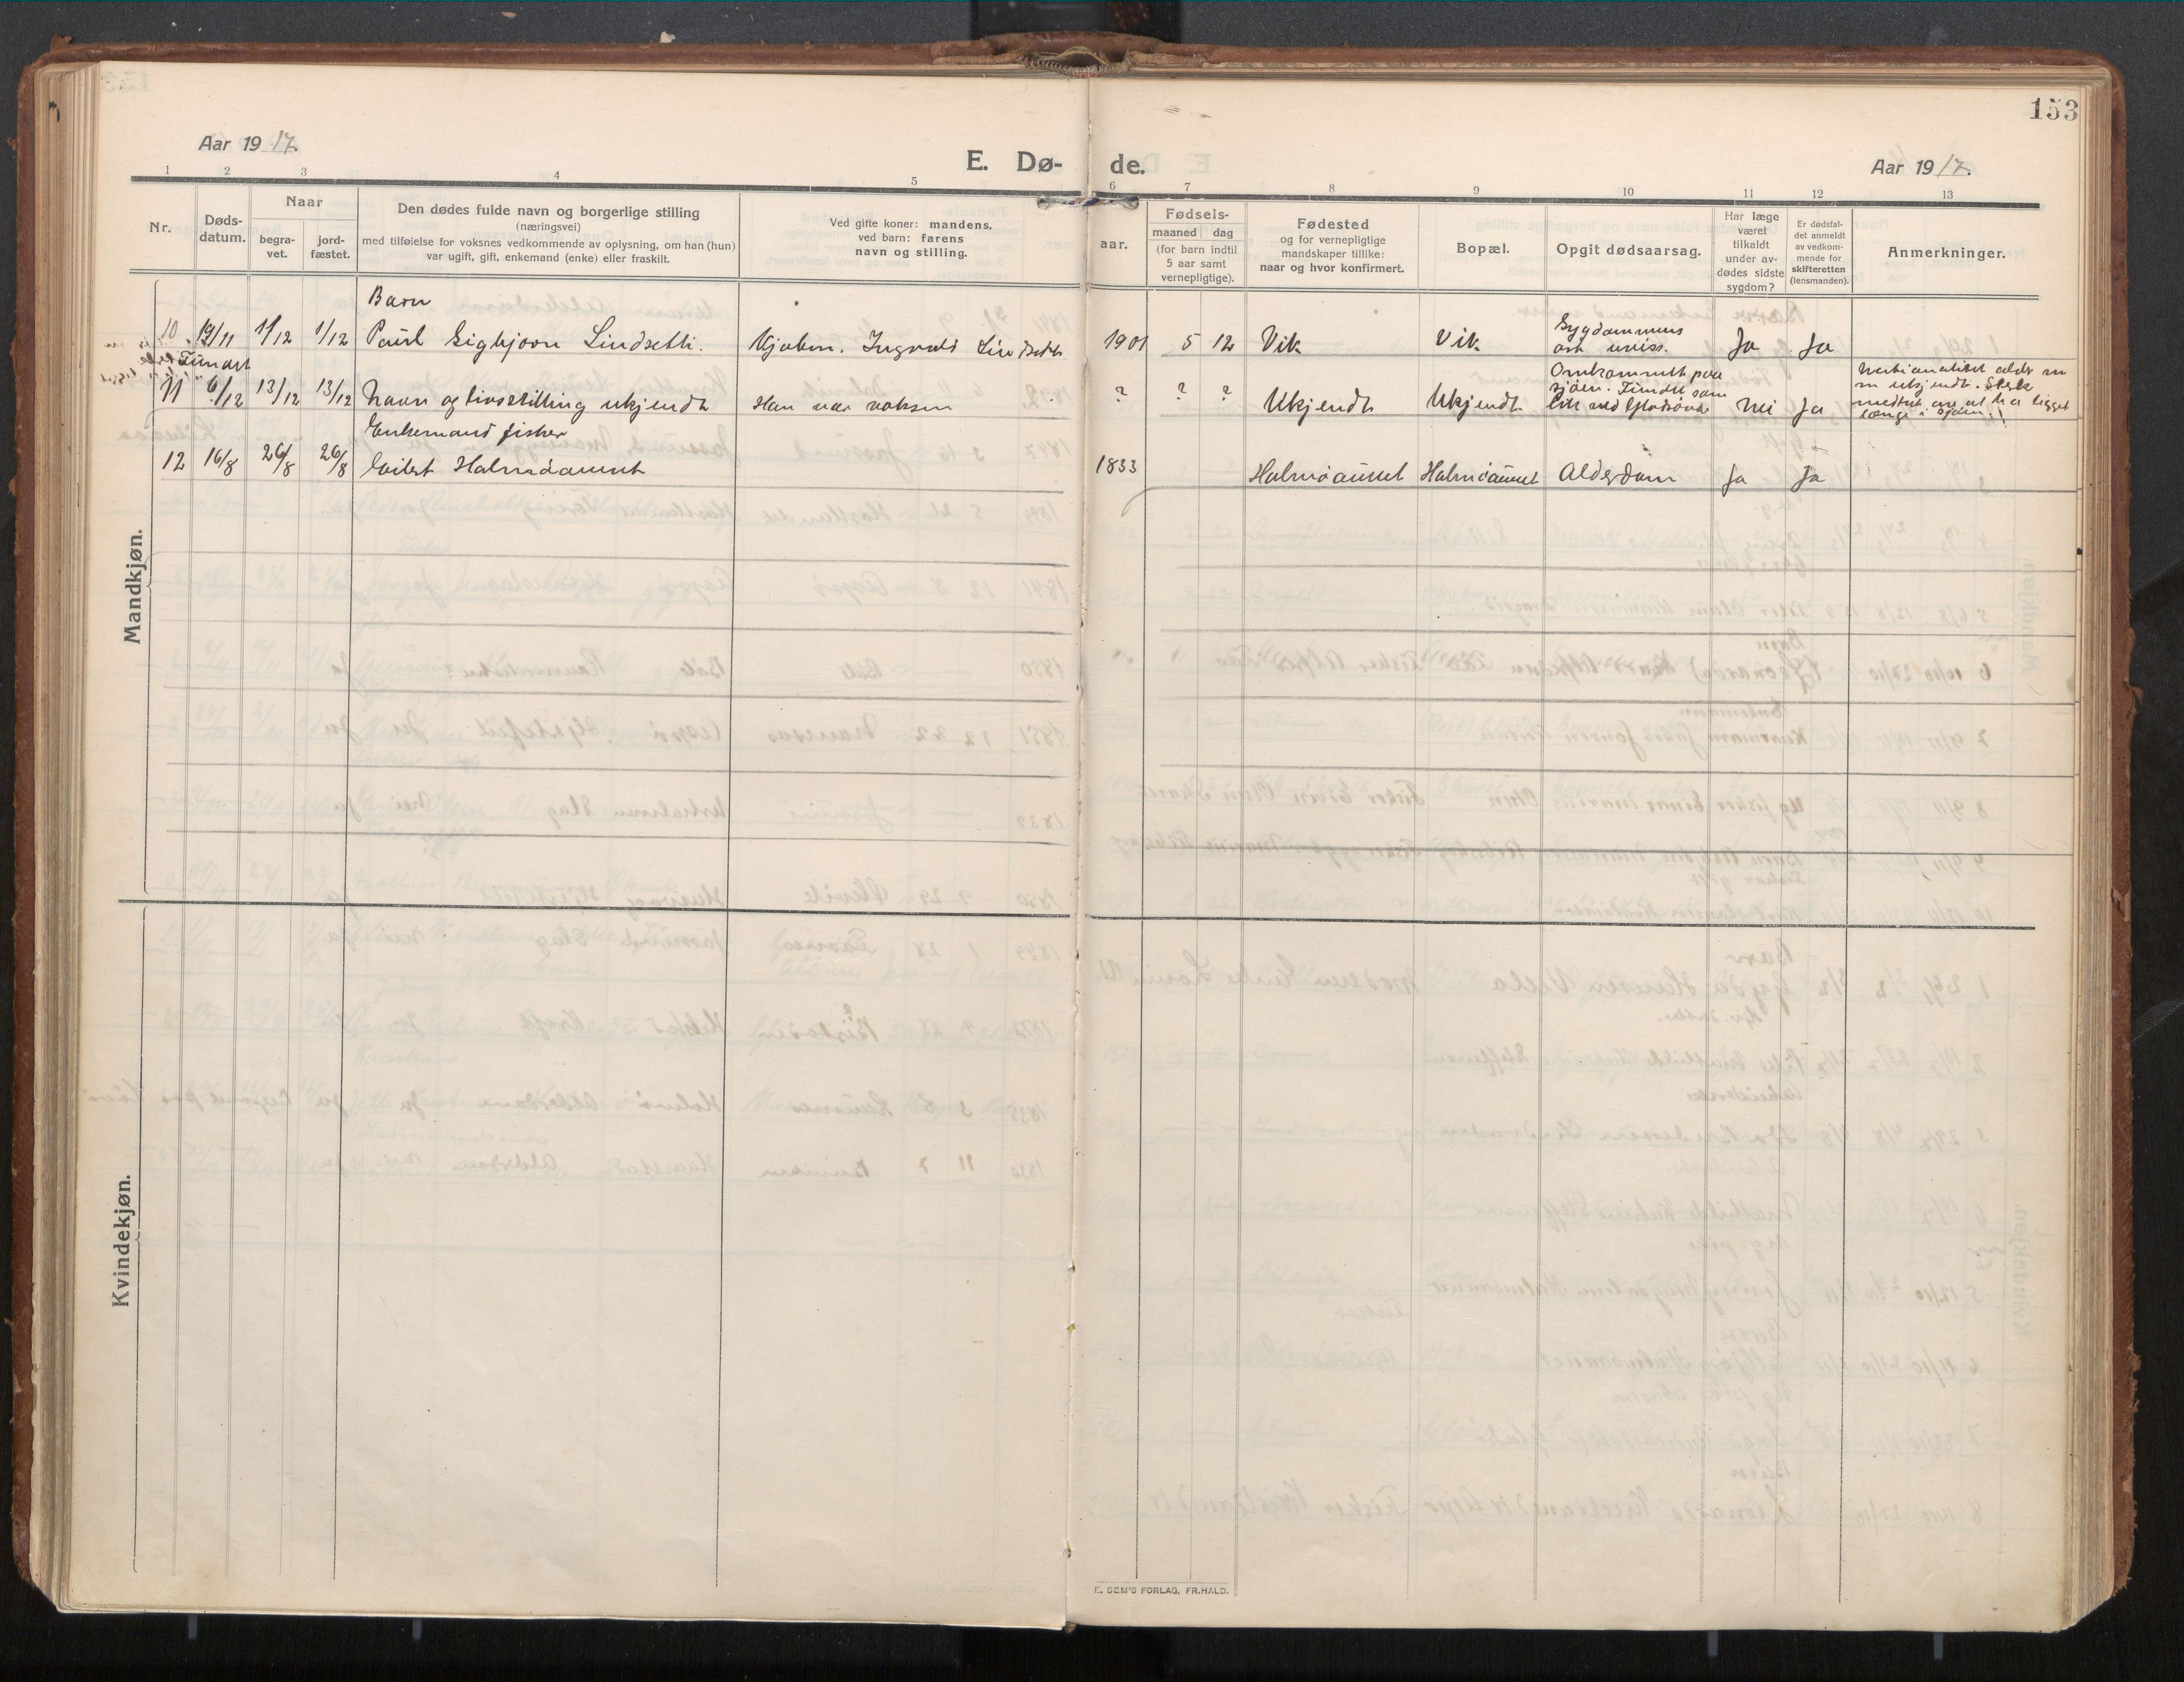 153
Aar 1917.
E. Dø- de.
Aar 1917.
1 2 3 4 5 6 7 8 9 10 11 12 13
Nr.
Døds-
datum.
Naar
begra-
vet.
jord-
fæstet.
Den dødes fulde navn og borgerlige stilling
(næringsvei)
med tilføielse for voksnes vedkommende av oplysning, om han (hun)
var ugift, gift, enkemand (enke) eller fraskilt.
Ved gifte koner: mandens,
ved barn: farens
navn og stilling.
aar.
Fødsels-
maaned dag
(for barn indtil
5 aar samt
vernepligtige).
Fødested
og for vernepligtige
mandskaper tillike:
naar og hvor konfirmert.
Bopæl.
Opgit dødsaarsag.
Har læge
været
tilkaldt
under av-
dødes sidste
sygdom?
Er dødsfal-
det anmeldt
av vedkom-
mende for
skifteretten
(lensmanden).
Anmerkninger.
Mandkjøn.
Barn
10 19/11 1/12 1/12 Paul Sigbjørn Lindseth. Kjøbm. Ingvald Lindseth 1901 5 12 Vik Vik Sygdommens
art uviss. Ja Ja
Fundet
11 6/12 13/12 13/12 Navn og livsstilling ukjendt Han var voksen ? ? ? Ukjendt Ukjendt Omkommet paa
sjøen. Fundet som
lik ved Nei Ja
Nationalitet alder m
m ukjendt. Sterk
medtat av at ha ligget
længe i sjøen.!
Enkemand fisker
12 16/8 26/8 26/8 Eilert Holmøaunet 1833 Holmøaunet Holmøaunet Alderdom Ja Ja
Kvindekjøn.
E. SEM'S FORLAG, FR.HALD.